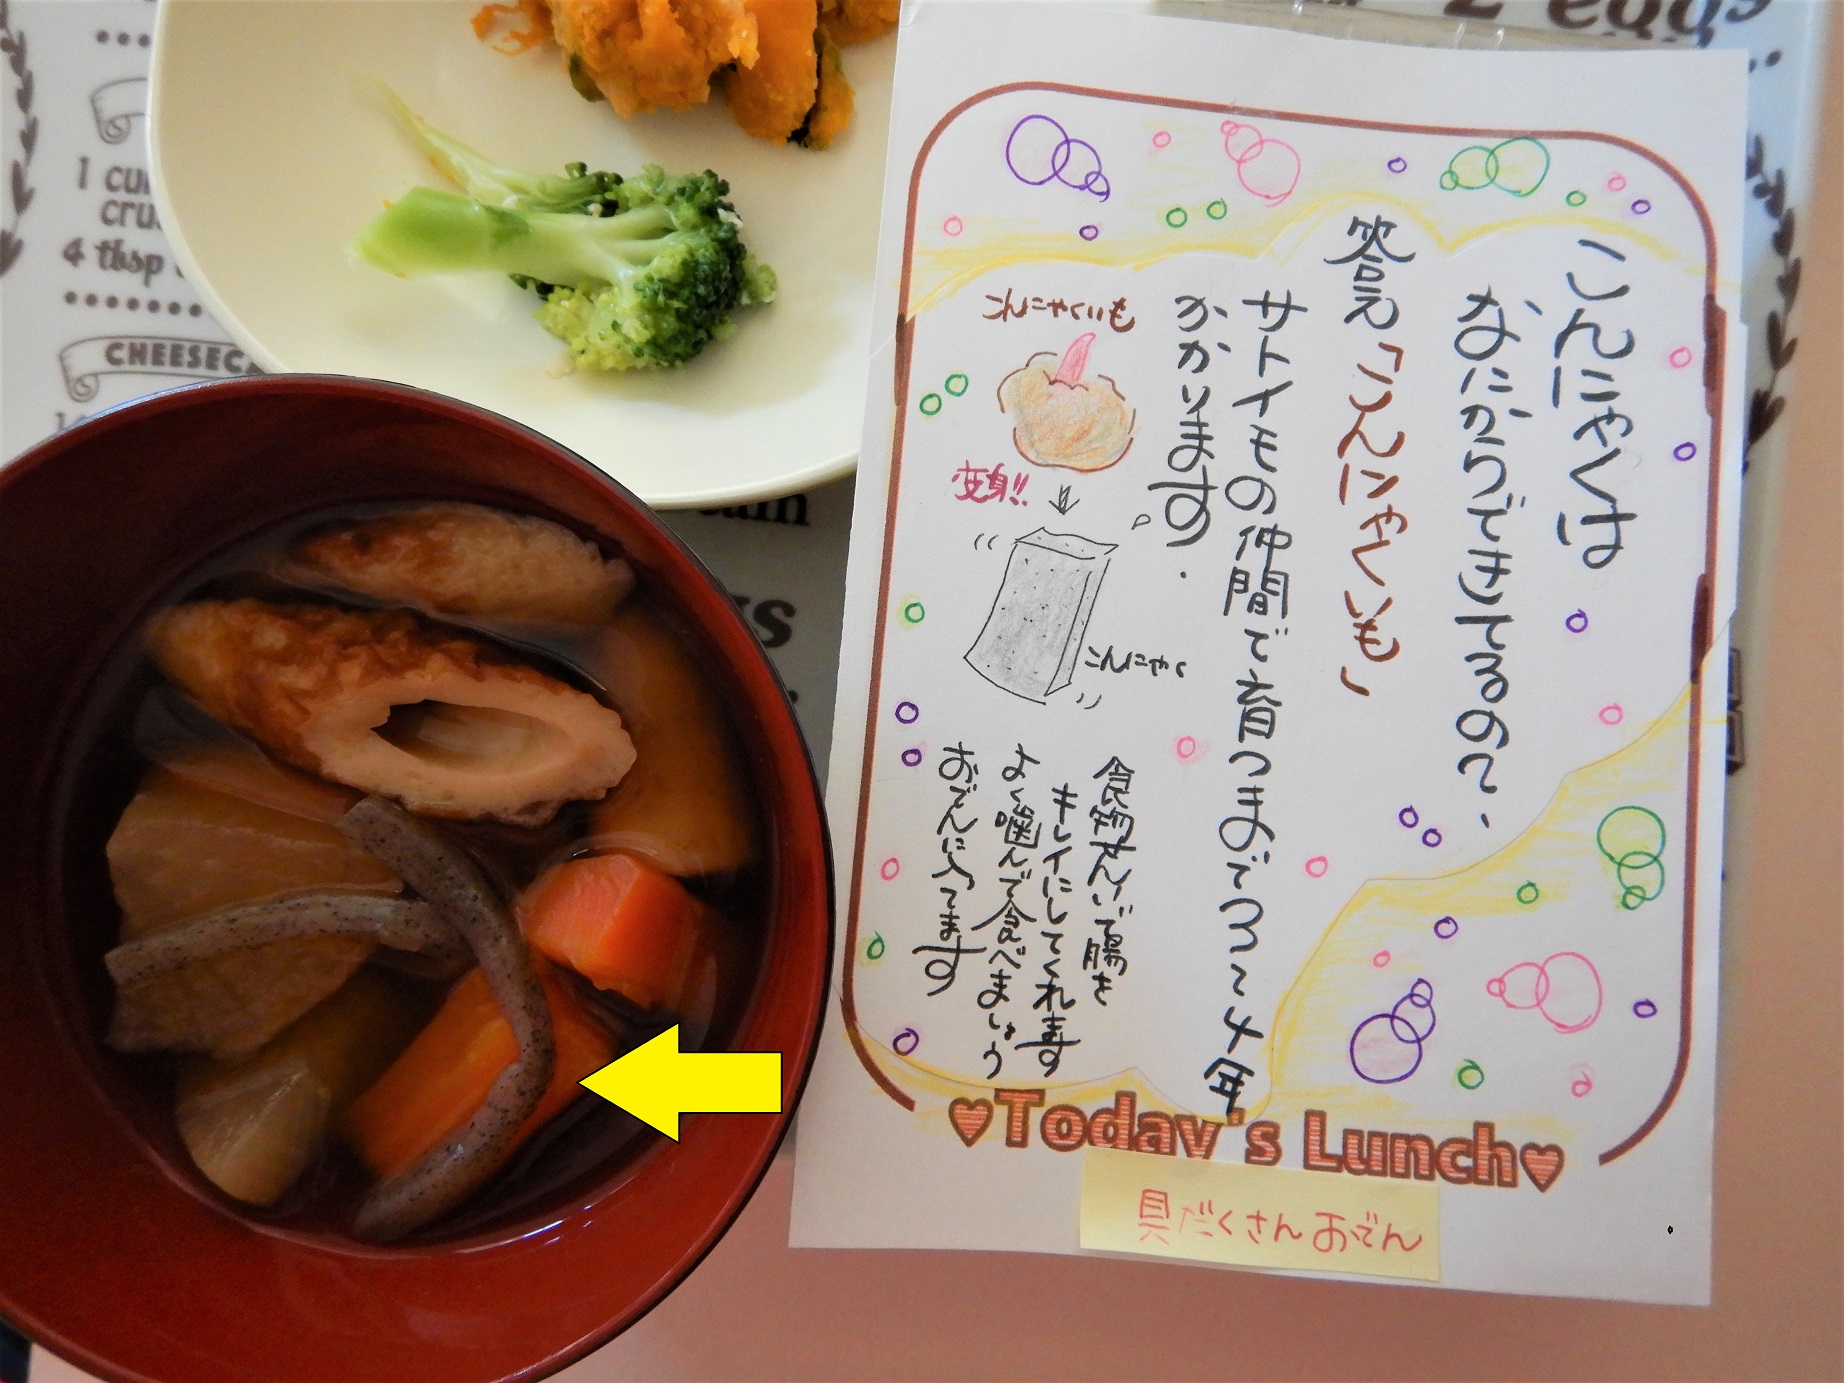 2 eggs
1 cu
cru
4 tbsp
CHEESEC
ain
gs
こんにゃくは
なにからできてるの~.
答え「こんにゃくいも」
サトイモの仲間で育つまで2~4年
かかります.
こんにゃくいも
変身!!
こんにゃく
食物せんいで腸を
キレイにしてくれます
よく噛んで食べましょう
おでんに入ってます
Today's Lunch
具だくさんおでん